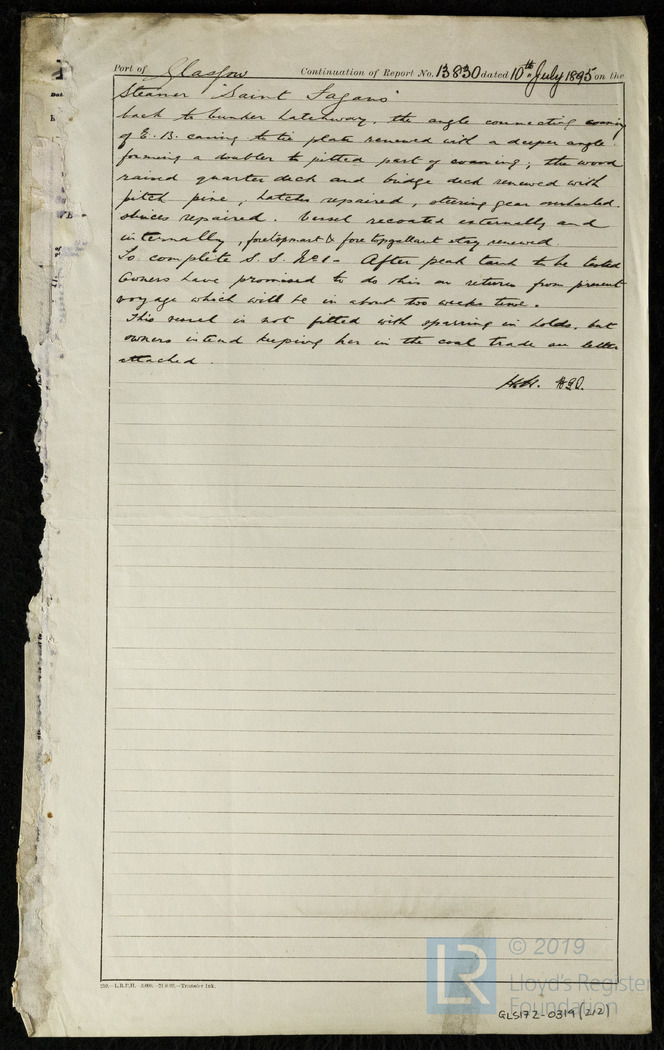 Port of Glasgow Continuation of Report No. 13830 dated 10th July 1895 on the
Steamer "Saint Fagans"
back to bunker hatchway, the angle connecting coaming
of E. B. casing to tie plate renewed with a deeper angle
forming a doubler to pitted part of coaming; the wood
raised quarter deck and bridge deck renewed with
pitch pine, hatches repaired, steering gear overhauled.
sluices repaired. Vessel recoated externally and
internally, foretopmast & foretopgallant stay renewed.
To complete S. S. No 1 - After peak tank to be tested
Owners have promised to do this on return from present
voyage which will be in about two weeks time.
This vessel is not fitted with sparring in holds, but
owners intend keeping her in the coal trade as letter
attached.
LR
© 2019
Lloyd's Register
Foundation
GLS172-0319 (2/2)